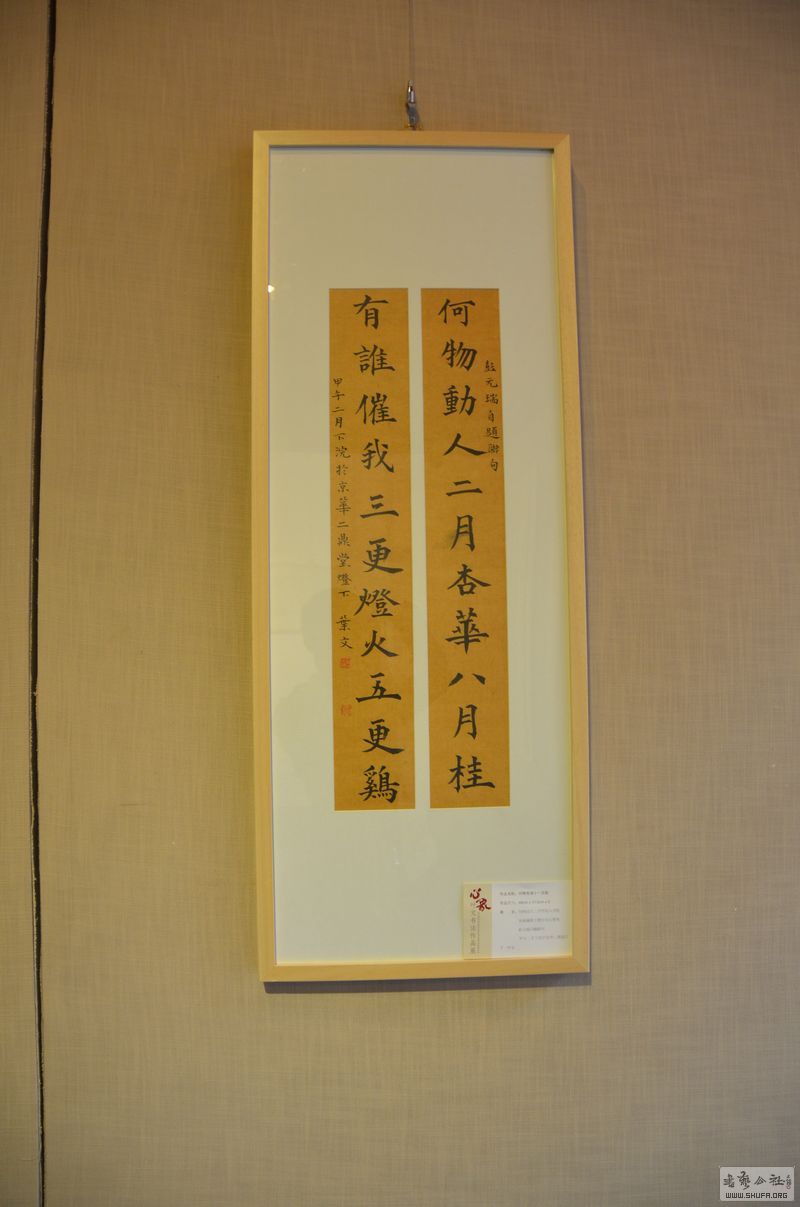 何物動人二月杏華八月桂
彭元瑞自題聯句
有誰催我三更燈火五更鷄
甲午二月下浣於京華二鼎堂燈下 葉文
心象
叶文书法作品展
WWW.SHUFA.ORG